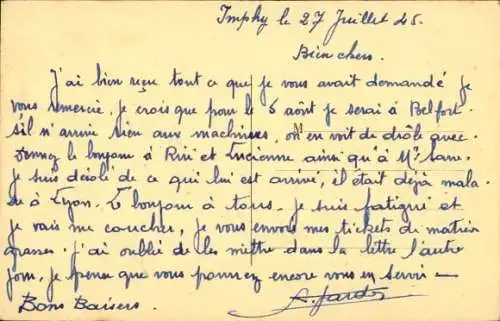 Imphy le 27 Juillet 45.
Bien chers.
J'ai bien reçu tout ce que je vous avait demandé je
vous remercie, je crois que pour le 5 août je serai à Belfort
s'il n'arrive rien aux machines, on en voit de drôle avec.
Donnez le bonjour à Riri et Lucienne ainsi qu'à Mr
je suis désolé de ce qui lui est arrivé, il était déjà mala-
de à Lyon. Le bonjour à tous. je suis fatigué et
je vais me coucher, je vous envois mes tickets de matière
grasses. j'ai oublié de les mettre dans la lettre l'autre
jour, je pense que vous pourrez encore vous en servir —
Bons Baisers.